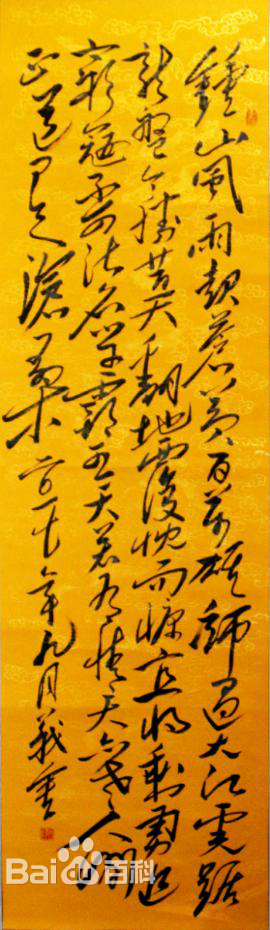 鍾山風雨起蒼黃百萬雄師過大江虎踞
龍盤今勝昔天翻地覆慨而慷宜將剩勇追
窮寇不可沽名學霸王天若有情天亦老人間
正道是滄桑 年九月義書
Bai百科